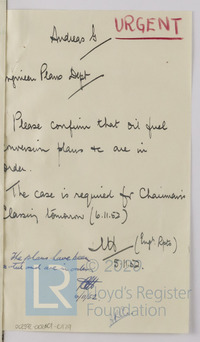 URGENT
Andreas G
Engineers Plans Dept
Please confirm that oil fuel
conversion plans &c are in
order.
The case is required for Chairman's
Classing tomorrow (6.11.52)
(Eng' Rpts)
5.11.52.
The plans have been
© 2020
LR Lloyd's Register
Foundation